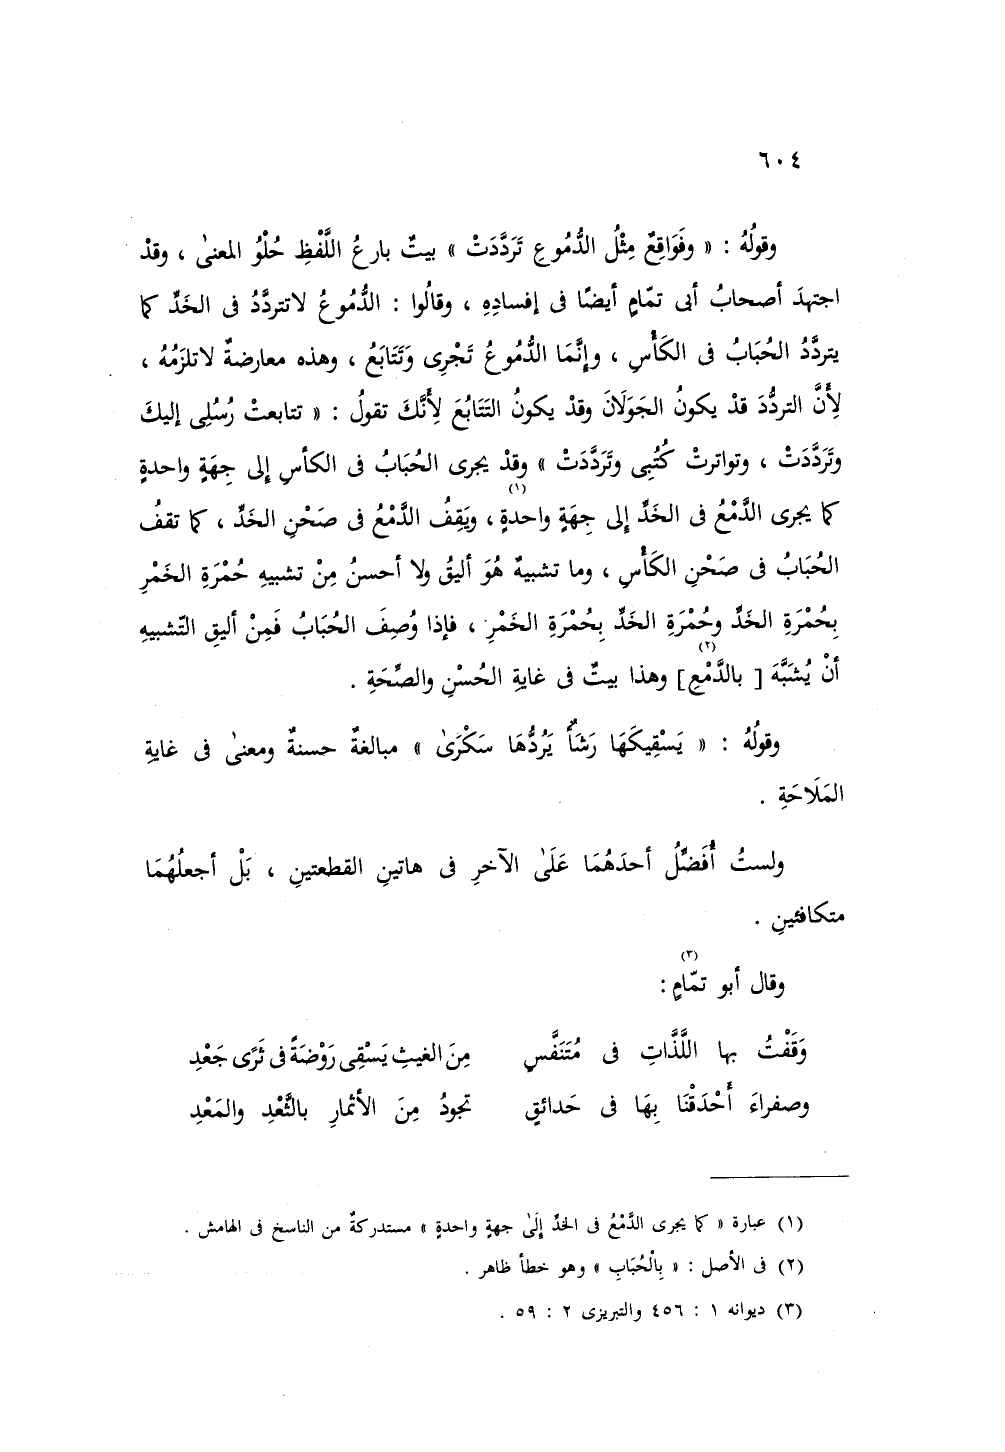 ٦٠٤
وقولُهُ : « وفَوَاقِعٌ مِثْلُ الدُّمُوعِ تَرَدَّدَتْ » بيتٌ بارعُ اللَّفْظِ حُلْوُ المعنىٰ ، وقدْ
اجتهدَ أصحابُ أبى تمّامٍ أيضًا فى إفسادِهِ ، وقالُوا : الدُّمُوعُ لاتتردَّدُ فى الخَدِّ كما
يتردَّدُ الحُبَابُ فى الكَأْسِ ، وإنَّمَا الدُّمُوعُ تَجْرِى وَتَتَابَعُ ، وهذه معارضةٌ لاتلزَمُهُ ،
لِأَنَّ التردُّدَ قدْ يكونُ الجَوَلَانَ وقدْ يكونُ التَتَابُعَ لِأَنَّكَ تقولُ : « تتابعتْ رُسُلِى إليكَ
وتَرَدَّدَتْ ، وتواترتْ كُتُبِى وتَرَدَّدَتْ » وقدْ يجرى الحُبَابُ فى الكأسِ إلى جِهَةٍ واحدةٍ
كما يجرى الدَّمْعُ فى الخَدِّ إلى جِهَةٍ واحدةٍ (١) ، ويَقِفُ الدَّمْعُ فى صَحْنِ الخَدِّ ، كما تقفُ
الحُبَابُ فى صَحْنِ الكَأْسِ ، وما تشبيهٌ هُوَ أليقُ ولا أحسنُ مِنْ تشبيهِ حُمْرَةِ الخَمْرِ
بِحُمْرَةِ الخَدِّ وحُمْرَةِ الخَدِّ بِحُمْرَةِ الخَمْرِ ، فإذا وُصِفَ الحُبَابُ فَمِنْ أليقِ التّشبيهِ
أنْ يُشَبَّهَ [ بالدَّمْعِ (٢) ] وهذا بيتٌ فى غايةِ الحُسْنِ والصِّحَةِ .
وقولُهُ : « يَسْقِيكَهَا رَشَأٌ يَرُدُّهَا سَكْرَىٰ » مبالغةٌ حسنةٌ ومعنىٰ فى غايةِ
المَلَاحَةِ .
ولستُ أُفَضِّلُ أحدَهُمَا عَلَىٰ الآخرِ فى هاتينِ القطعتينِ ، بَلْ أجعلُهُمَا
متكافئينِ .
وقال أبو تمّامٍ (٣) :
وَقَفْتُ بها اللَّذَّاتِ فى مُتَنَفَّسٍ مِنَ الغيثِ يَسْقِى رَوْضَةً فى ثَرًى جَعْدِ
وصفراءَ أَحْدَقْنَا بِهَا فى حَدائقٍ تجودُ مِنَ الأثمارِ بالثَّعْدِ والمَعْدِ
(١) عبارة « كما يجرى الدَّمْعُ فى الخدِّ إلَىٰ جهةٍ واحدةٍ » مستدركةٌ من الناسخ فى الهامش .
(٢) فى الأصل : « بِالْحُبَابِ » وهو خطأ ظاهر .
(٣) ديوانه ١ : ٤٥٦ والتبريزى ٢ : ٥٩ .